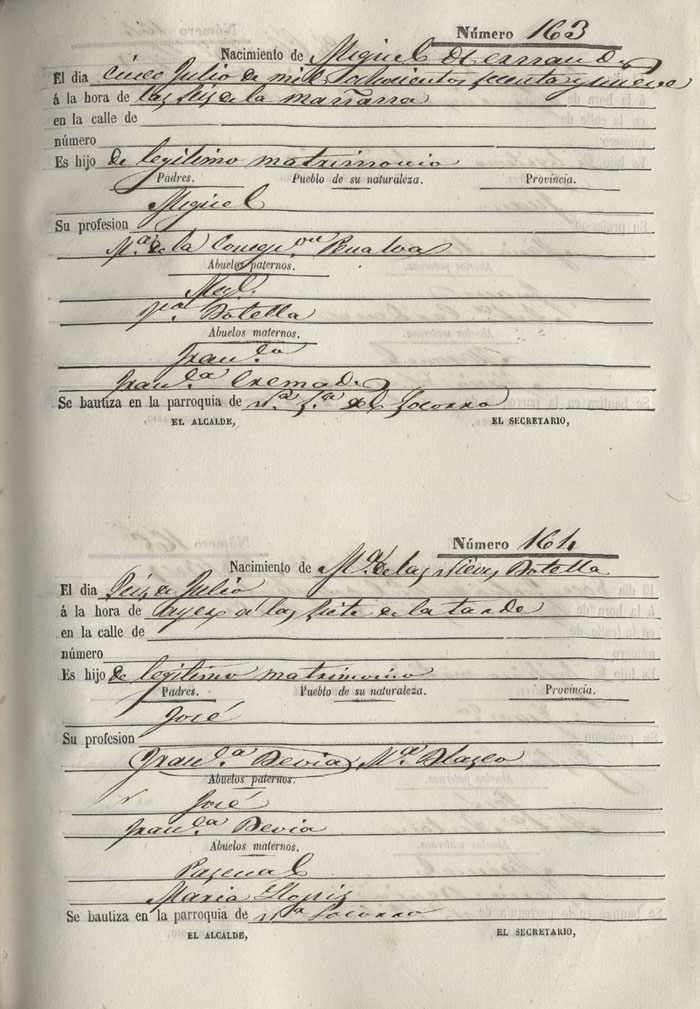 Número 163
Nacimiento de Miguel Hernandz
El dia cinco Julio de mil ochocientos sesenta y nueve
á la hora de las seis de la mañana
en la calle de
número
Es hijo de legitimo matrimonio
Padres. Pueblo de su naturaleza. Provincia.
Miguel
Su profesion
M.ª de la Concep.on Penalva
Abuelos paternos.
Migl.
Botella
Abuelos maternos.
Fran.co
Fran.ca Cremades
Se bautiza en la parroquia de N.ª S.ª del Socorro
EL ALCALDE, EL SECRETARIO,
Número 164
Nacimiento de M.ª de las Nieves Botella
El dia Seis de Julio
á la hora de ayer á las siete de la tarde
en la calle de
número
Es hijo de legitimo matrimonio
Padres. Pueblo de su naturaleza. Provincia.
José
Su profesion
Fran.ca Devia M.ª Blasco
Abuelos paternos.
José
Fran.ca Devia
Abuelos maternos.
Pascual
Maria Llopis
Se bautiza en la parroquia de N.ª Socorro
EL ALCALDE, EL SECRETARIO,